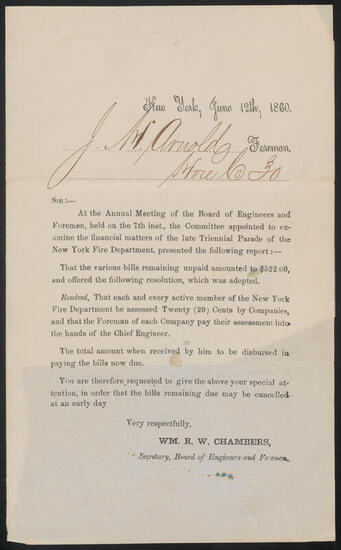 New York, June 12th, 1860.
J. W. Arnold Foreman.
Hose Co 30
SIR:—
At the Annual Meeting of the Board of Engineers and
Foremen, held on the 7th inst., the Committee appointed to ex-
amine the financial matters of the late Triennial Parade of the
New York Fire Department, presented the following report:—
That the various bills remaining unpaid amounted to $522.00,
and offered the following resolution, which was adopted.
Resolved, That each and every active member of the New York
Fire Department be assessed Twenty (20) Cents by Companies,
and that the Foreman of each Company pay their assessment into
the hands of the Chief Engineer.
The total amount when received by him to be disbursed in
paying the bills now due.
You are therefore requested to give the above your special at-
tention, in order that the bills remaining due may be cancelled
at an early day
Very respectfully,
WM. R. W. CHAMBERS,
Secretary, Board of Engineers and Foremen.